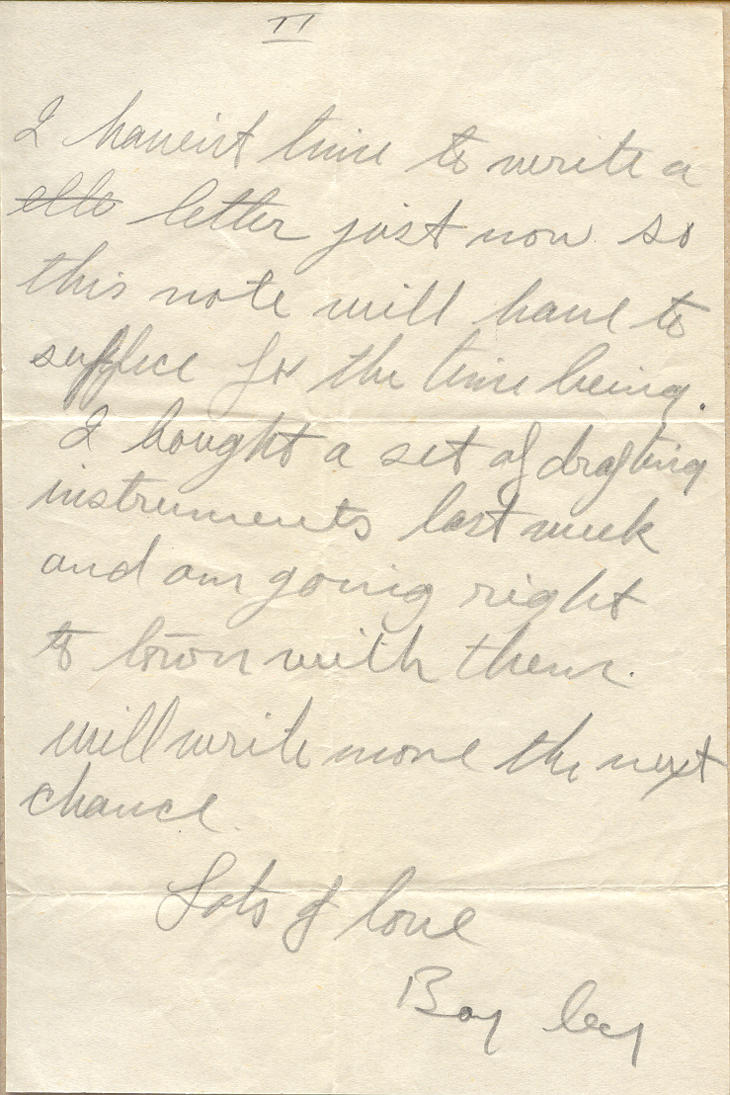 II
I haven't time to write a
letter just now so
this note will have to
suffice for the time being.
I bought a set of drafting
instruments last week
and am going right
to town with them.
will write more the next
chance.
Lots of love
Boy